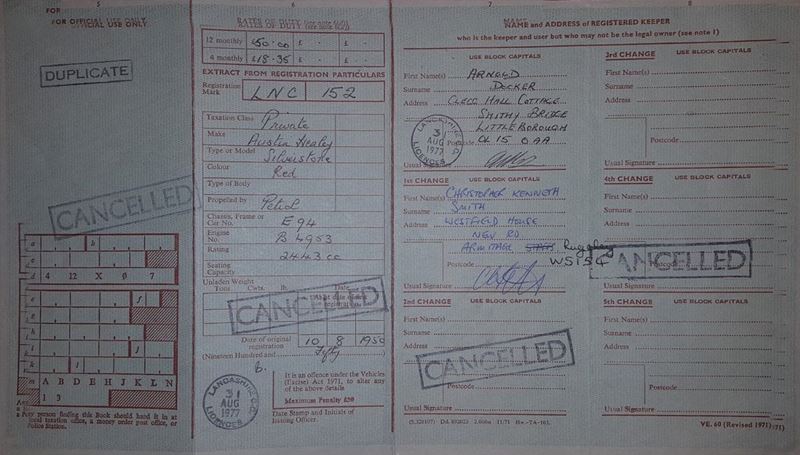 5
FOR OFFICIAL USE ONLY
DUPLICATE
CANCELLED
a
b
c
d 4 12 X 0 7
e
f
g
h
i
j
k
l
m A B D E H J K L N
1 3
Any person finding this Book should hand it in at
local taxation office, a money order post office, or
Police Station.
6
RATES OF DUTY
12 monthly £50·00 £ · £ ·
4 monthly £18·35 £ · £ ·
EXTRACT FROM REGISTRATION PARTICULARS
Registration Mark LNC 152
Taxation Class Private
Make Austin Healy
Type or Model Silverstone
Colour Red
Type of Body
Propelled by Petrol
Chassis, Frame or Car No. E 94
Engine No. B 4953
Rating 2443 cc
Seating Capacity
Unladen Weight
Tons Cwts. lb. Date
As at date of registration
CANCELLED
Date of original registration 10 8 1950
(Nineteen Hundred and Fifty)
6.
It is an offence under the Vehicles
(Excise) Act 1971, to alter any
of the above details
Maximum Penalty £50
Date Stamp and Initials of
Issuing Officer.
LANCASHIRE C.C.
31
AUG
1977
LICENCES
7
NAME and ADDRESS of REGISTERED KEEPER
who is the keeper and user but who may not be the legal owner (see note 1)
USE BLOCK CAPITALS
First Name(s) ARNOLD
Surname DOCKER
Address CLEGG HALL COTTAGE
SMITHY BRIDGE
LITTLEBOROUGH
Postcode OL15 0AA
Usual Signature
LANCASHIRE C.C.
31
AUG
1977
LICENCES
1st CHANGE USE BLOCK CAPITALS
First Name(s) CHRISTOPHER KENNETH
Surname SMITH
Address WESTFIELD HOUSE
NEW RD
ARMITAGE STAFFS Rugeley
Postcode WS15 4
Usual Signature
2nd CHANGE USE BLOCK CAPITALS
First Name(s)
Surname
Address
CANCELLED
Postcode
Usual Signature
(5.328107) Dd. 892823
11/71 Hw.-TA-103.
8
3rd CHANGE USE BLOCK CAPITALS
First Name(s)
Surname
Address
Postcode
Usual Signature
4th CHANGE USE BLOCK CAPITALS
First Name(s)
Surname
Address
CANCELLED
Postcode
Usual Signature
5th CHANGE USE BLOCK CAPITALS
First Name(s)
Surname
Address
Postcode
Usual Signature
VE. 60 (Revised 1971)